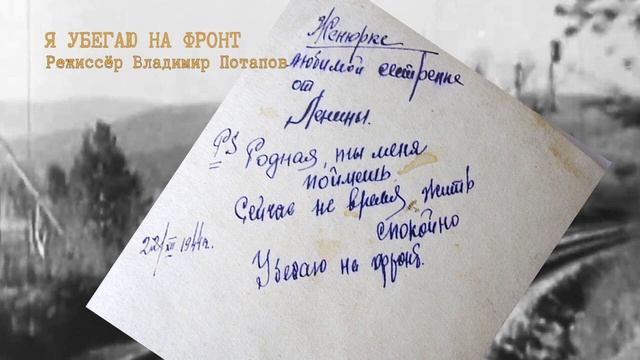 Я УБЕГАЮ НА ФРОНТ
Режиссёр Владимир Потапов
Женюрке
любимой сестренке
от
Ленины.
PS Родная, ты меня
поймешь.
Сейчас не время жить
спокойно
Убегаю на фронт.
22/XII 1941г.